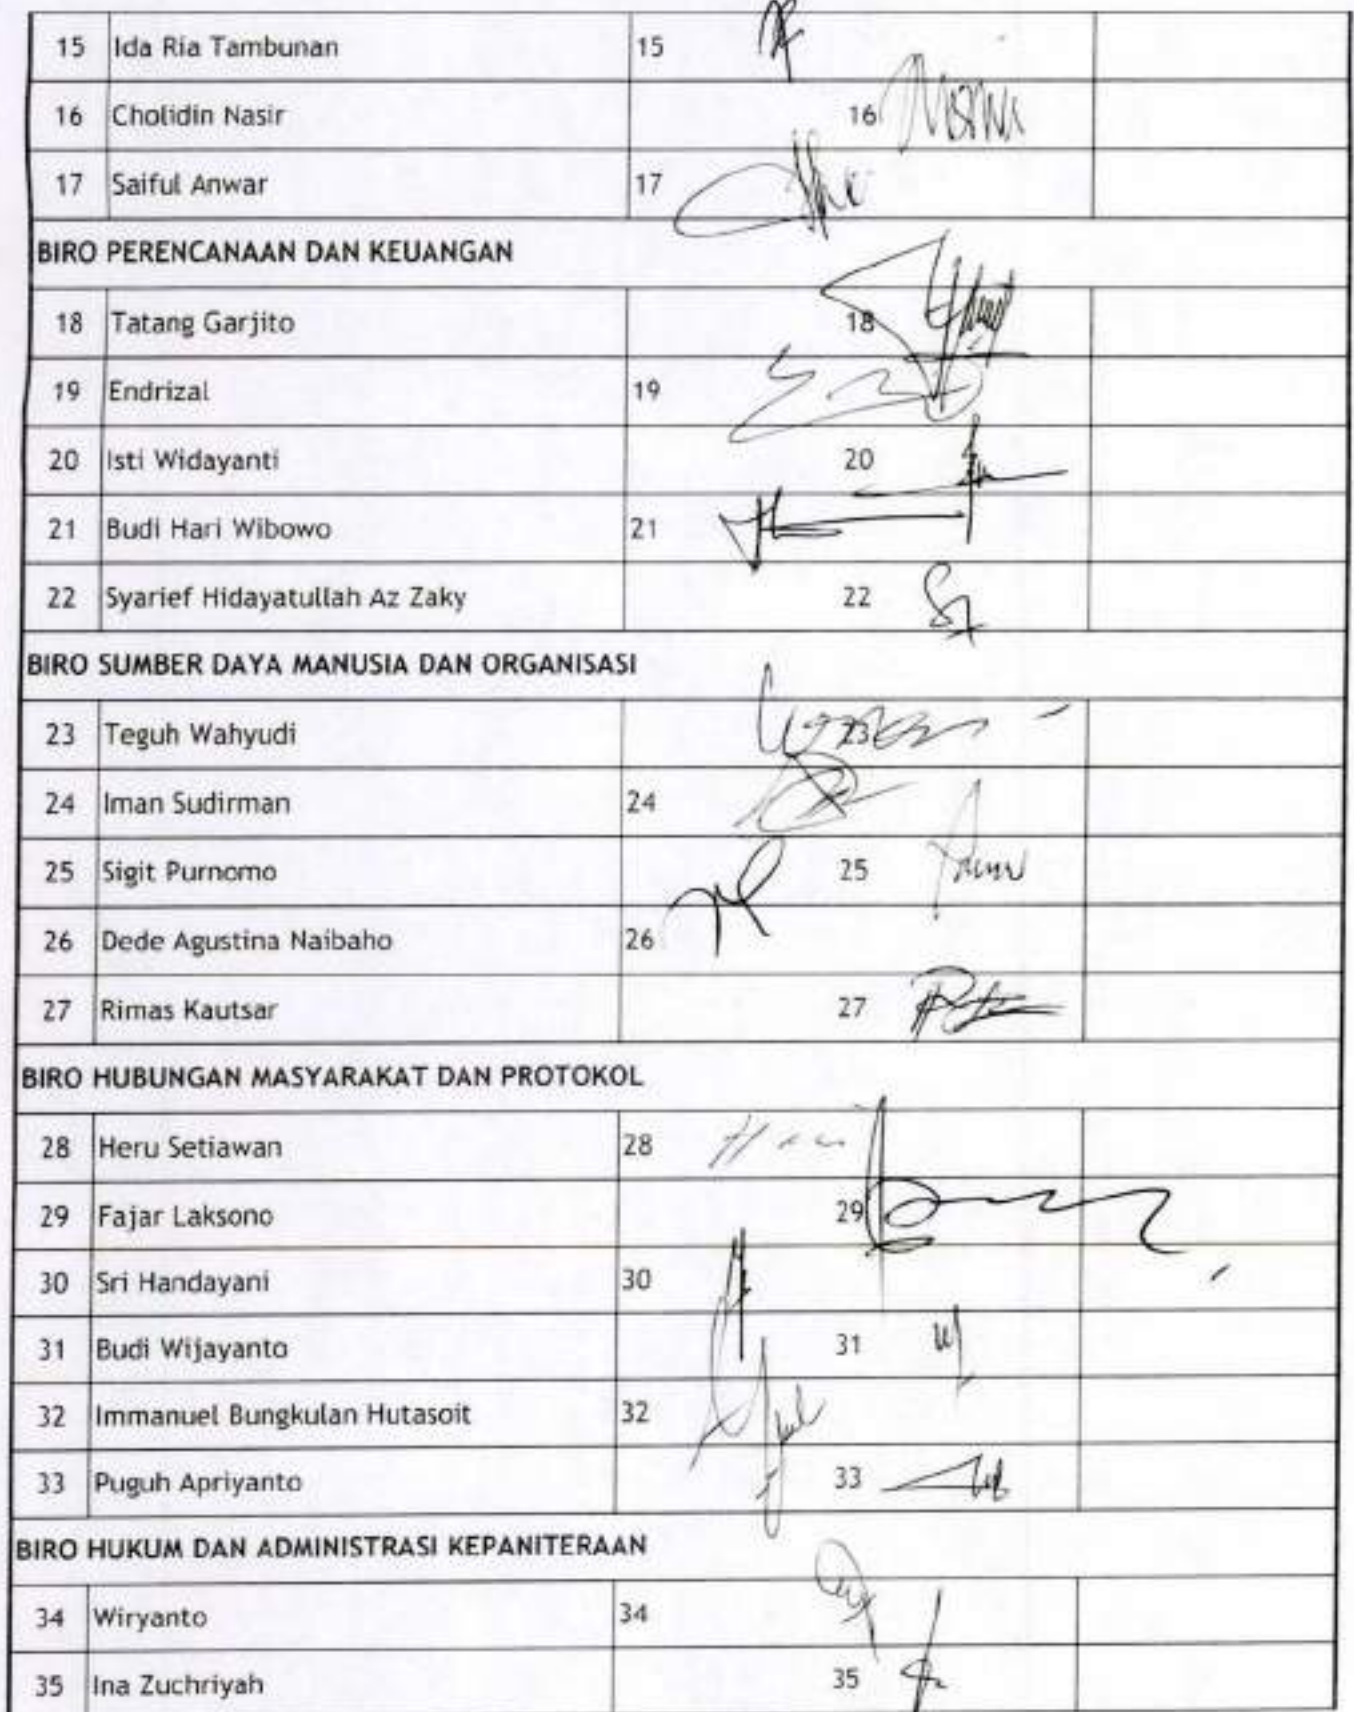 15 Ida Ria Tambunan 15
16 Cholidin Nasir 16
17 Saiful Anwar 17
BIRO PERENCANAAN DAN KEUANGAN
18 Tatang Garjito 18
19 Endrizal 19
20 Isti Widayanti 20
21 Budi Hari Wibowo 21
22 Syarief Hidayatullah Az Zaky 22
BIRO SUMBER DAYA MANUSIA DAN ORGANISASI
23 Teguh Wahyudi 23
24 Iman Sudirman 24
25 Sigit Purnomo 25
26 Dede Agustina Naibaho 26
27 Rimas Kautsar 27
BIRO HUBUNGAN MASYARAKAT DAN PROTOKOL
28 Heru Setiawan 28
29 Fajar Laksono 29
30 Sri Handayani 30
31 Budi Wijayanto 31
32 Immanuel Bungkulan Hutasoit 32
33 Puguh Apriyanto 33
BIRO HUKUM DAN ADMINISTRASI KEPANITERAAN
34 Wiryanto 34
35 Ina Zuchriyah 35